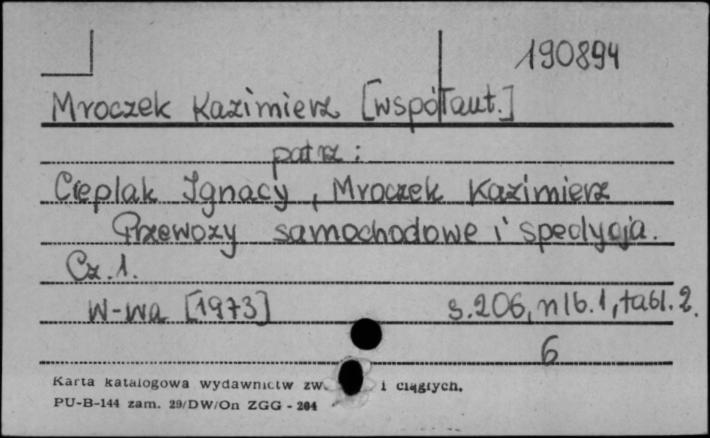 190894
Mroczek Kazimierz [współaut.]
patrz:
Cieplak Ignacy, Mroczek Kazimierz
Przewozy samochodowe i spedycja.
Cz. 1.
W-wa [1973] s. 206, nlb. 1, tabl. 2.
6
Karta katalogowa wydawnictw zw. i ciągłych.
PU-B-144 zam. 29/DW/On ZGG - 204